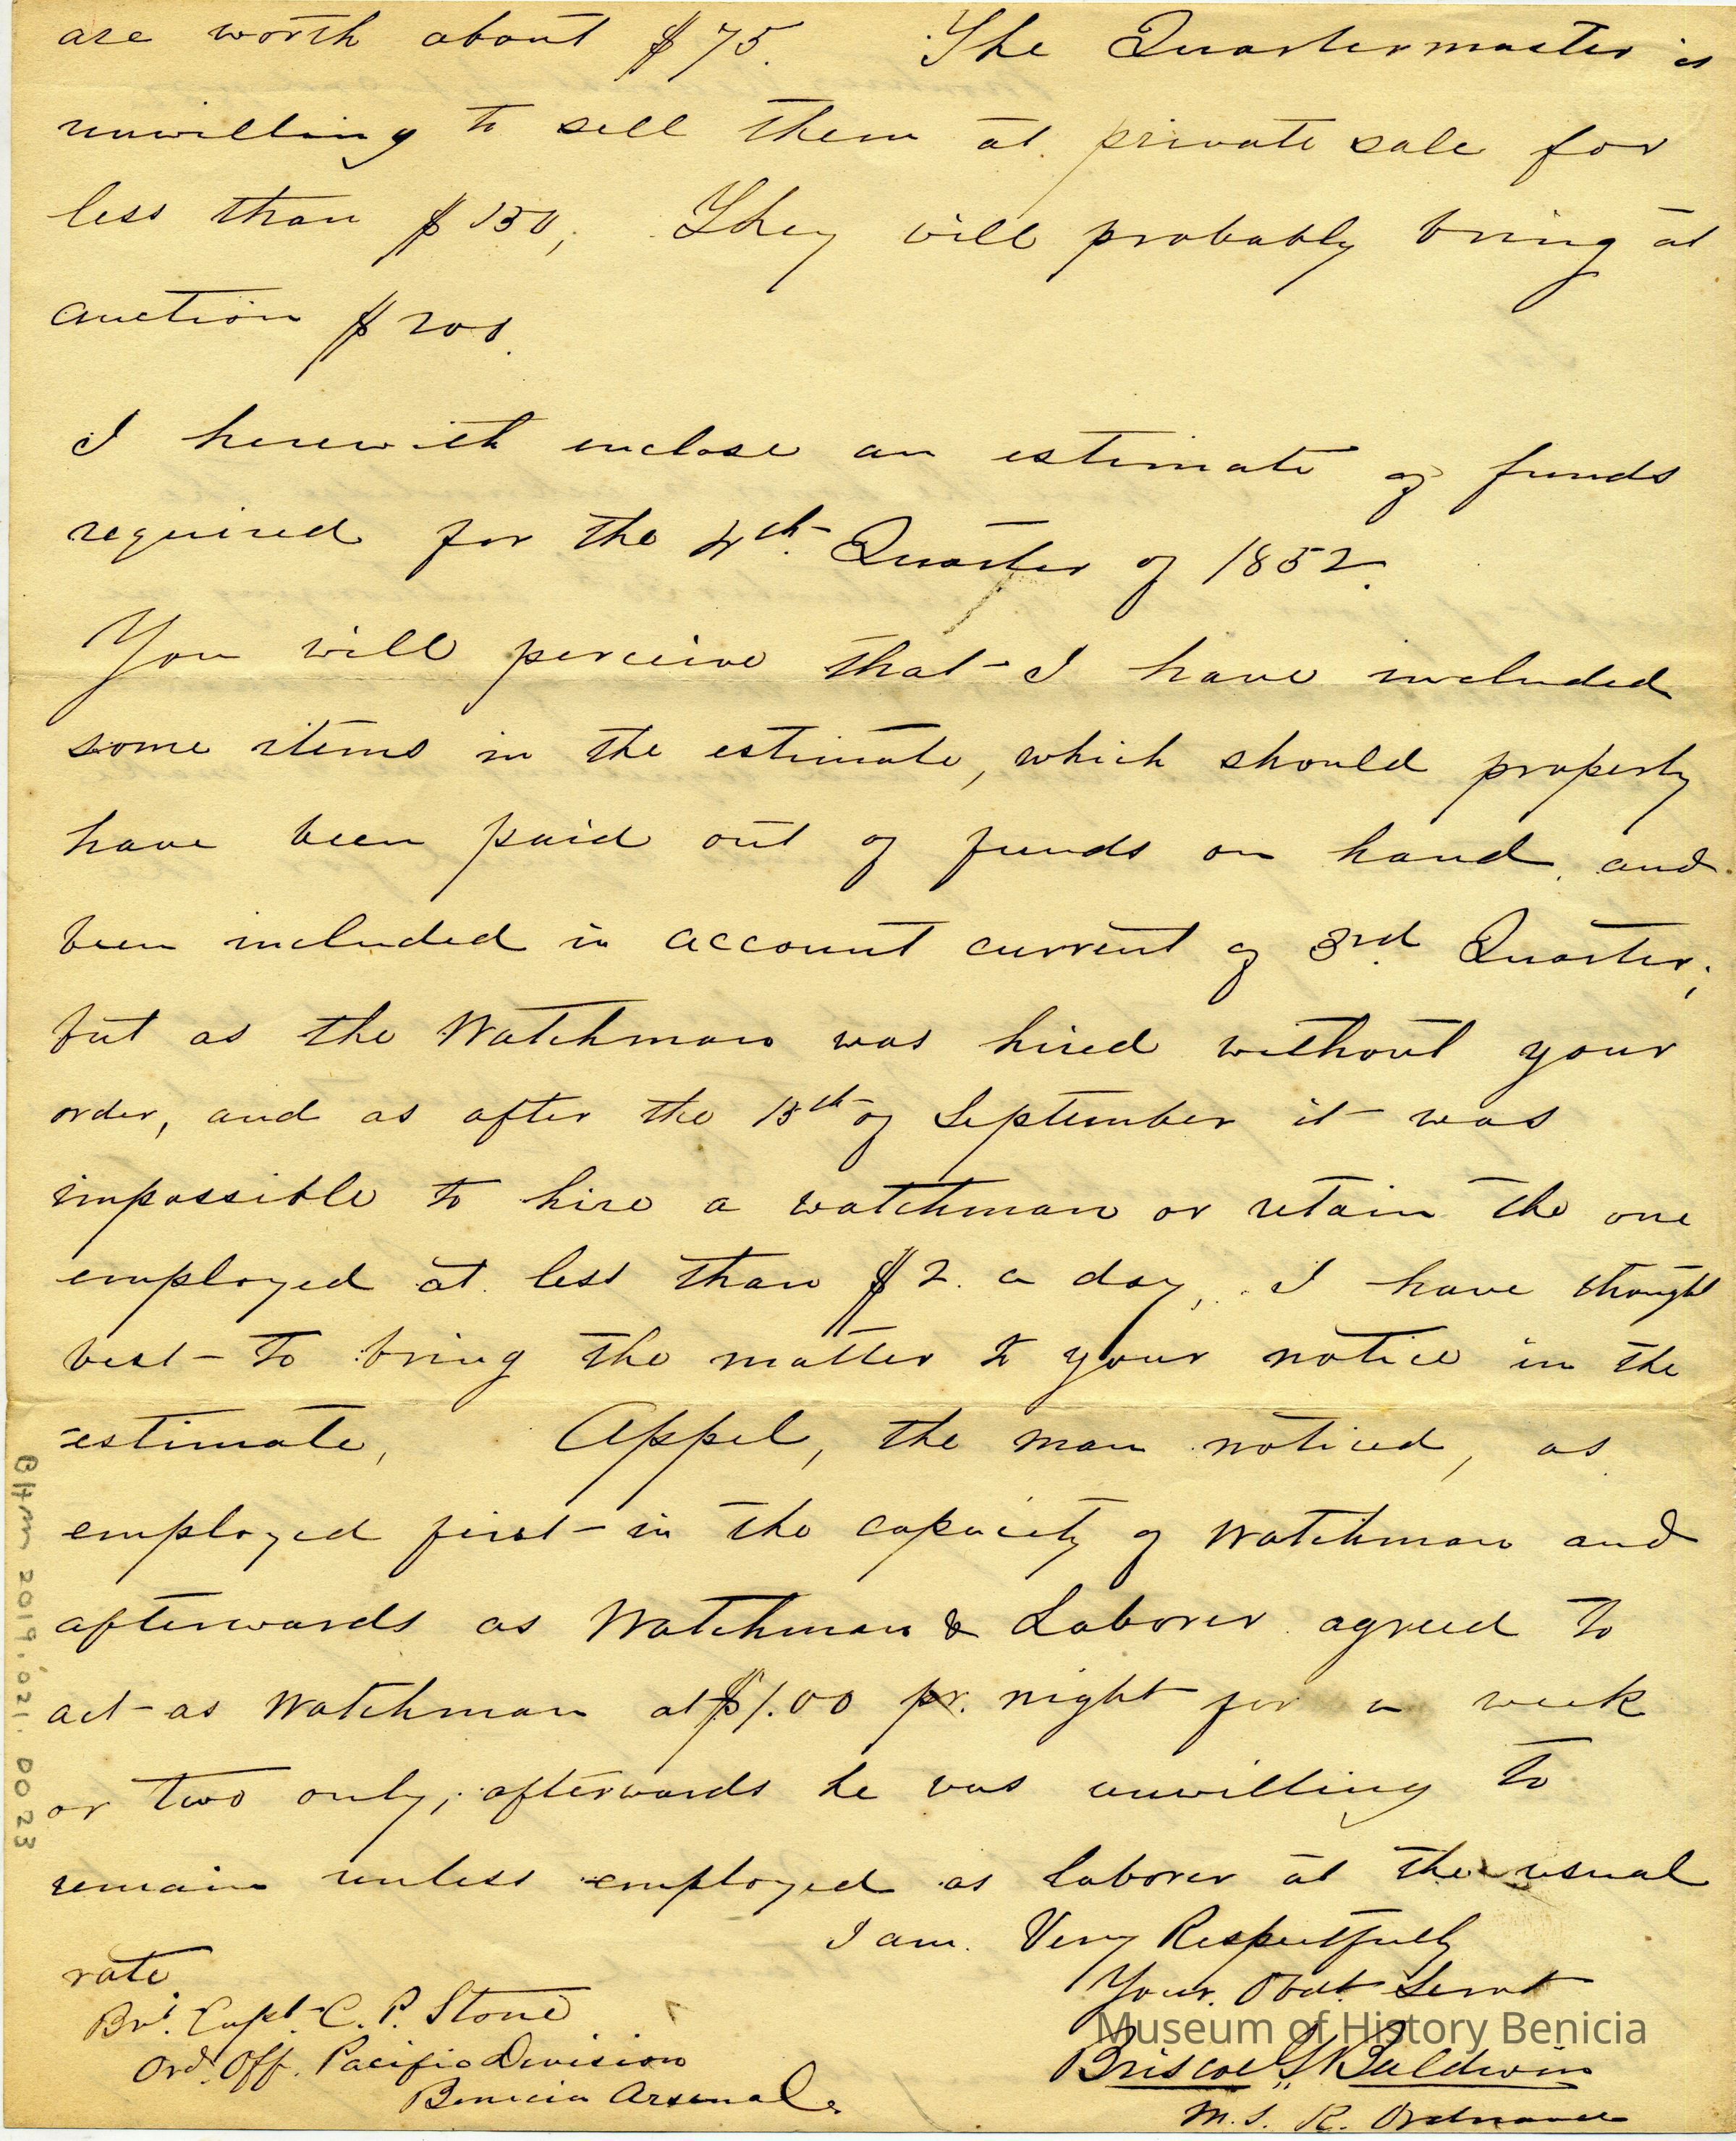 are worth about $75. The Quartermaster is
unwilling to sell them at private sale for
less than $150; They will probably bring at
auction $200.
I herewith enclose an estimate of funds
required for the 4th. Quarter of 1852.
You will perceive that I have included
some items in the estimate, which should properly
have been paid out of funds on hand, and
been included in account current of 3rd. Quarter;
but as the Watchman was hired without your
order, and as after the 15th of September it was
impossible to hire a watchman or retain the one
employed at less than $2. a day, I have thought
best to bring the matter to your notice in the
estimate, Appel, the man noticed, as
employed first in the capacity of Watchman and
afterwards as Watchman & Laborer agreed to
act as Watchman at $1.00 pr. night for a week
or two only; afterwards he was unwilling to
remain unless employed as laborer at the usual
rate
I am. Very Respectfully
Your. Obdt. Servt
Briscoe G. Baldwin
M. S. K. Ordnance
Bvt. Capt. C. P. Stone
Ord. Off. Pacific Division
Benicia Arsenal.
BHM 2019.021.0023
Museum of History Benicia